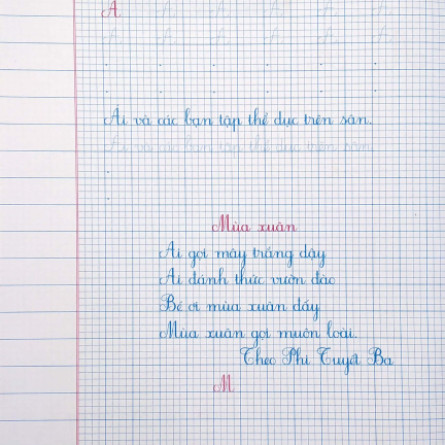 A
A A A A A A
A A A A A A
Ai và các bạn tập thể dục trên sân.
Ai và các bạn tập thể dục trên sân.
Mùa xuân
Ai gọi mây trắng dậy
Ai đánh thức vườn đào
Bé ơi mùa xuân đấy
Mùa xuân gọi muôn loài.
Theo Phi Tuyết Ba
M